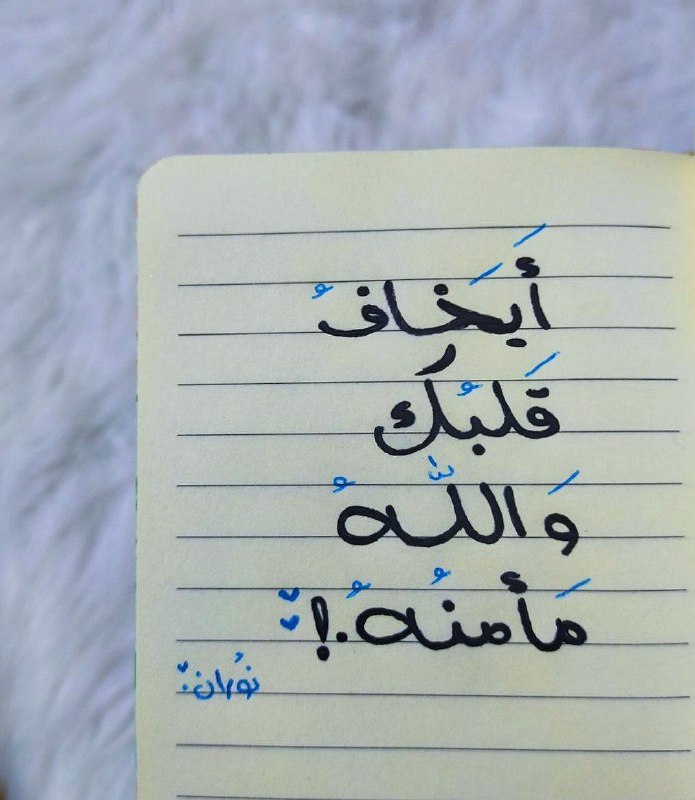 أَيَخافُ
قَلبُك
وَاللّهُ
مَأمنُهُ.!
نُوران